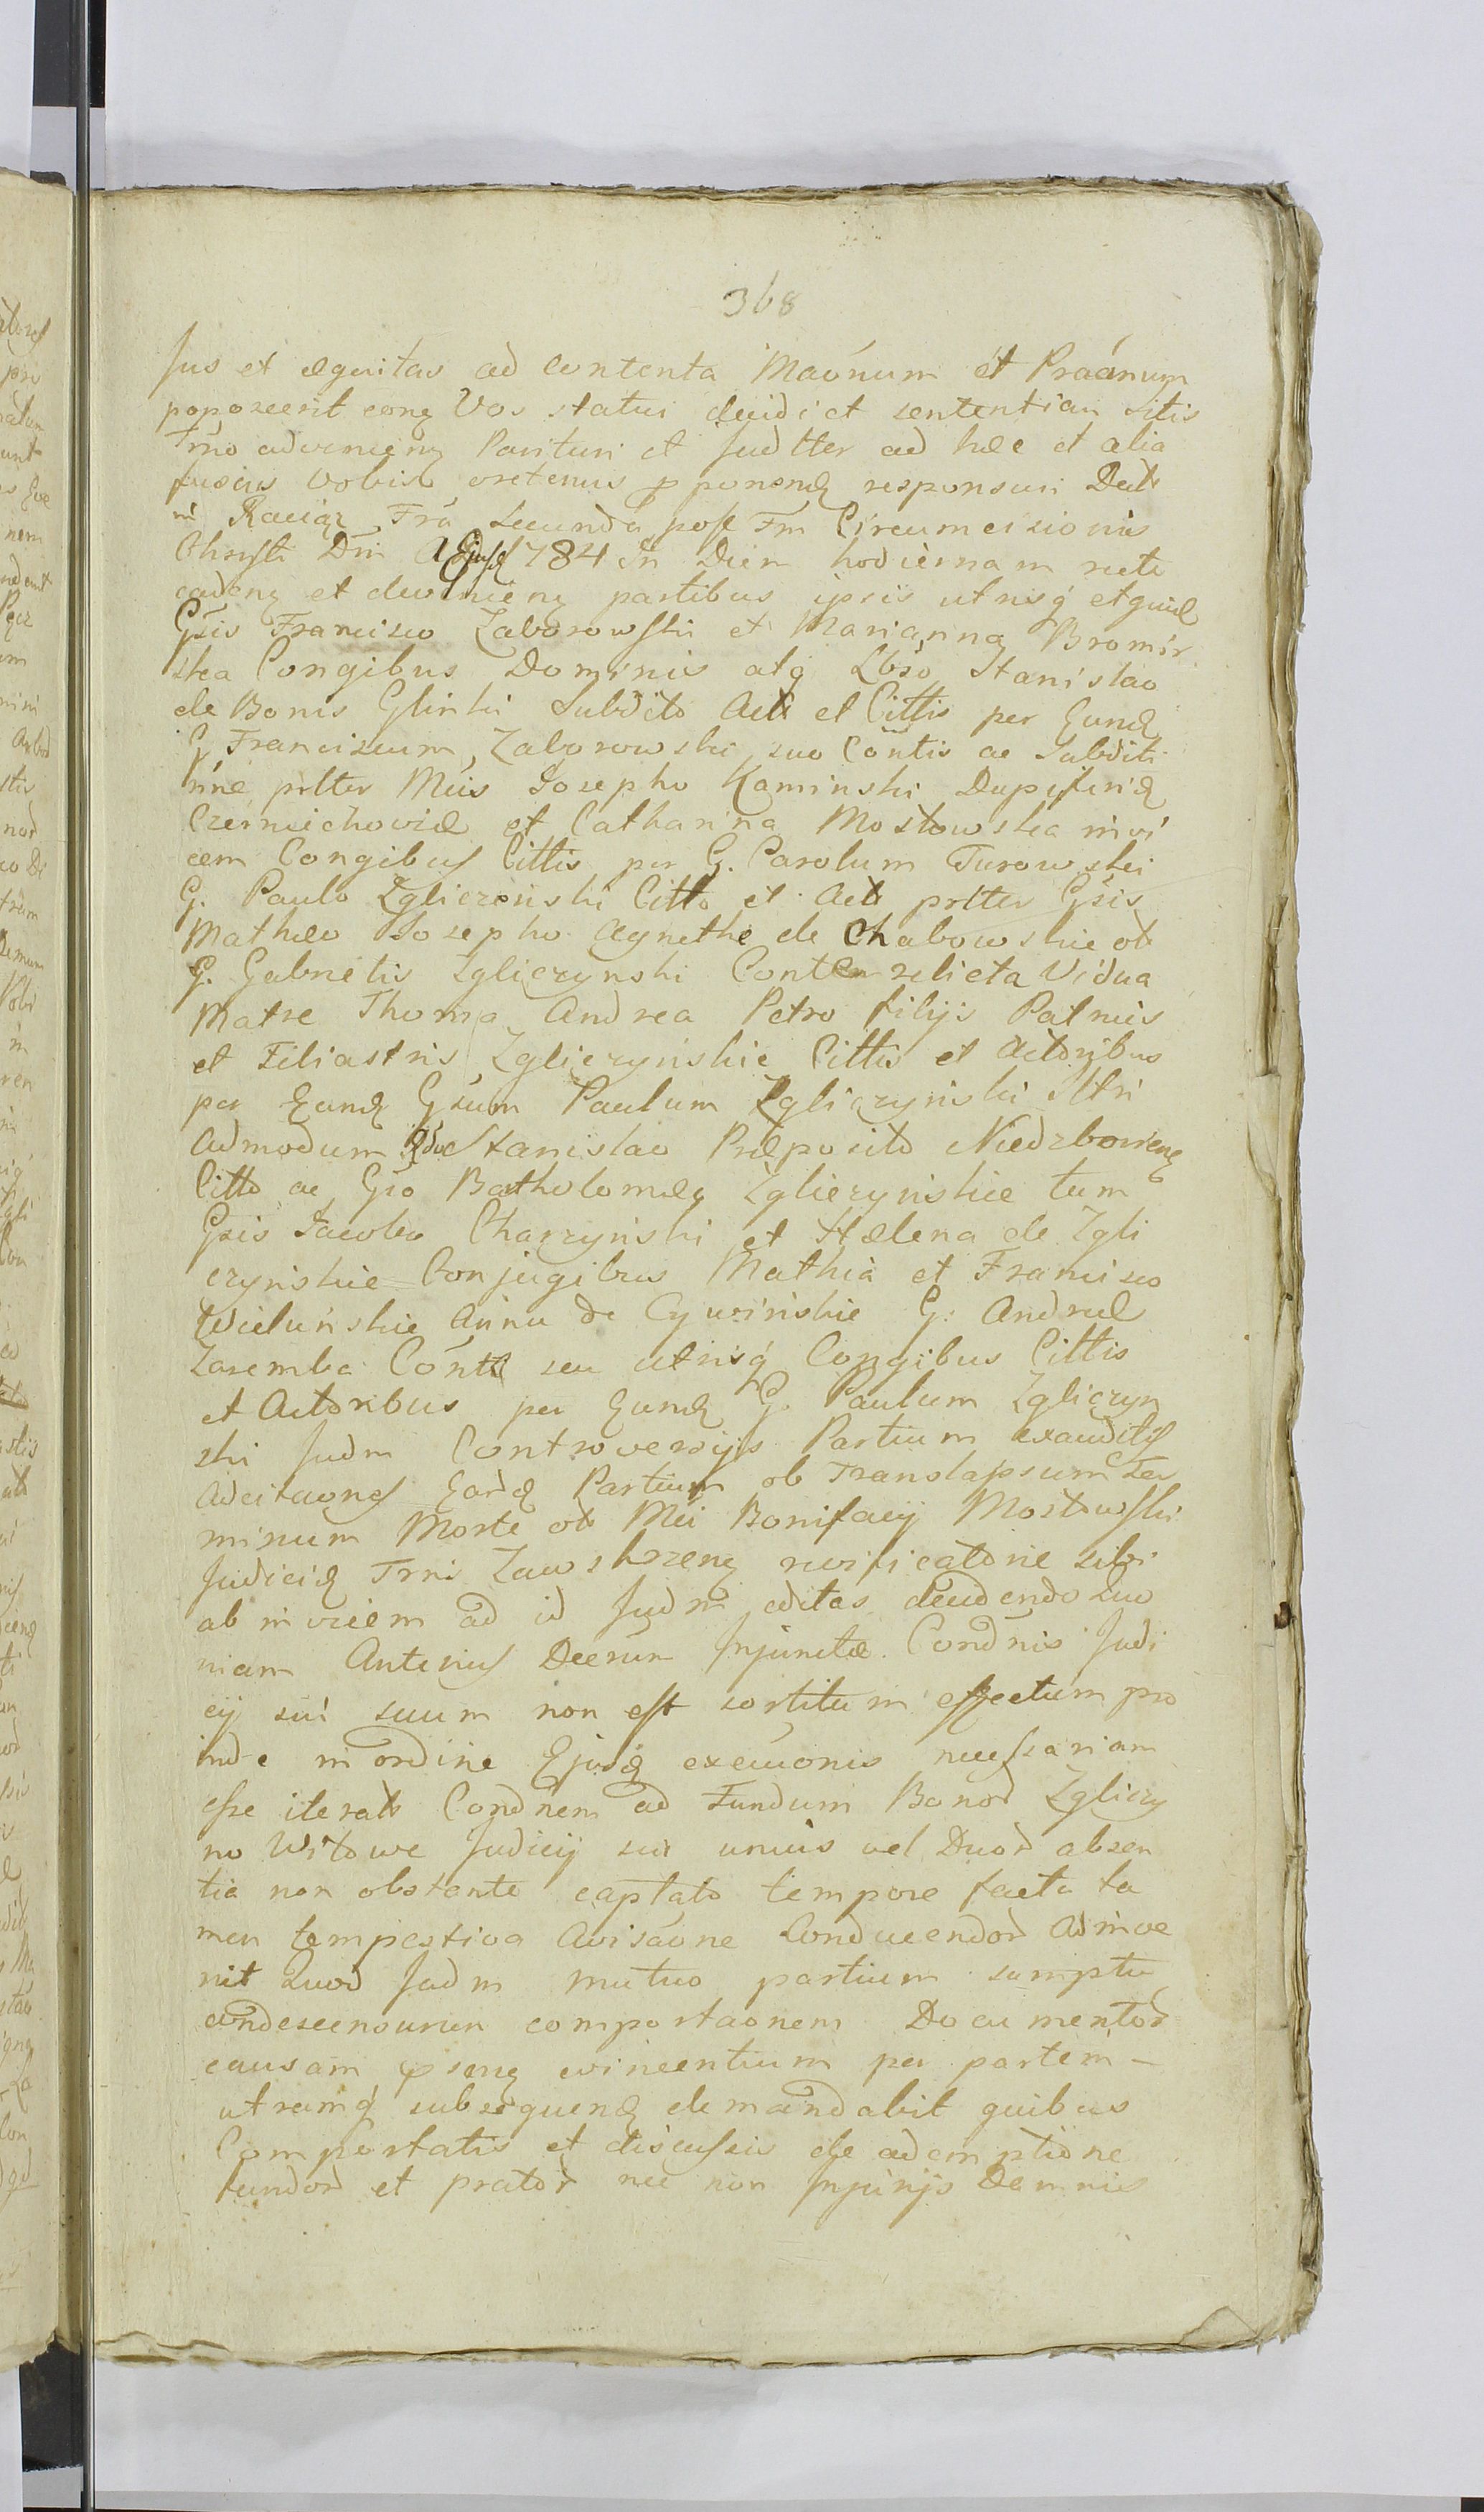 368
Jus et æquitas ad contenta Maónum et Praánum
poposcerit eonq Vos statui decidi et sententian sitis
Trno advenienq Parituri et Judtter ad hæc et alia
fusius vobis oretenus pponend responsuri Datt
in Raciąz Fra secunda post Fm Circumcisionis
Christi Dni A Ejusd 784 In Diem hodiernam recte
cadenq et devenienq partibus ipsis utrisq etquid
Gsis Francisco Zaborowski et Marianna Bromir
ska Congibus Dominis atq Lbso Stanislao
de Bonis Glinki Subdito Actt et Cittis per Eund
G Franciscum Zaborowski suo Contis ac Subditi
nne prtter Mcis Josepho Kaminski Dapiferid
Czerniechoviæ et Catharina Mostowska invi
cem Congibus Cittis per G. Carolum Turowski
G. Paulo Zgliczynski Citto et Actt prtter Gsis
Mathæo Josepho Agnethe de Chabowskie ot
G. Gabrielis Zgliczynski Conten relicta Vidua
Matre Thoma Andrea Petro filijs Patruis
et Filiastris Zgliczynskie Cittis et Actoribus
per Eund Gsum Paulum Zgliczyński Altri
Admodum Rdo Stanislao Præposito Niedzbovienq
Citto ac Gso Batholomæq Zgliczyńskie tum
Gsis Jacobo Charzyński et Hælena de Zgli
czyńskie Conjugibus Mathia et Francisco
Wieluńskie Anna de Cywińskie G. Andreæ
Zaremba Contt seu utrisq Congibus Cittis
et Actoribus per Eund G. Paulum Zgliczyn
ski Judm Controversijs Partium exauditis
Adcitaones Eard Partium ob Translapsum Ter
minum Morte ot Mci Bonifacij Mostowski
Judicid Trni Zawskrzenq revificatorie sibi
ab invicem ad id Judm editas decidendo Quo
niam Anterius Decrum Injunctæ Condnis Judi
cij sui suum non est sortitum effectum pro
inde in ordine Ejusd execuonis necessariam
esse iteratt Condnem ad Fundum Bonor Zgliczy
no Witowe Judicij sui unius vel Duor absen
tia non obstante captato tempore facta ta
men tempestiva Avisaone Conducendor Adinve
nit Quod Judm mutuo partium sumptu
condescensurum comportaonem Documentor
causam psenq evincentium per partem
utramq subsequend demandabit quibus
Comportatis et discussis de ademptione
fundor et prator nec non Injurijs Damnis